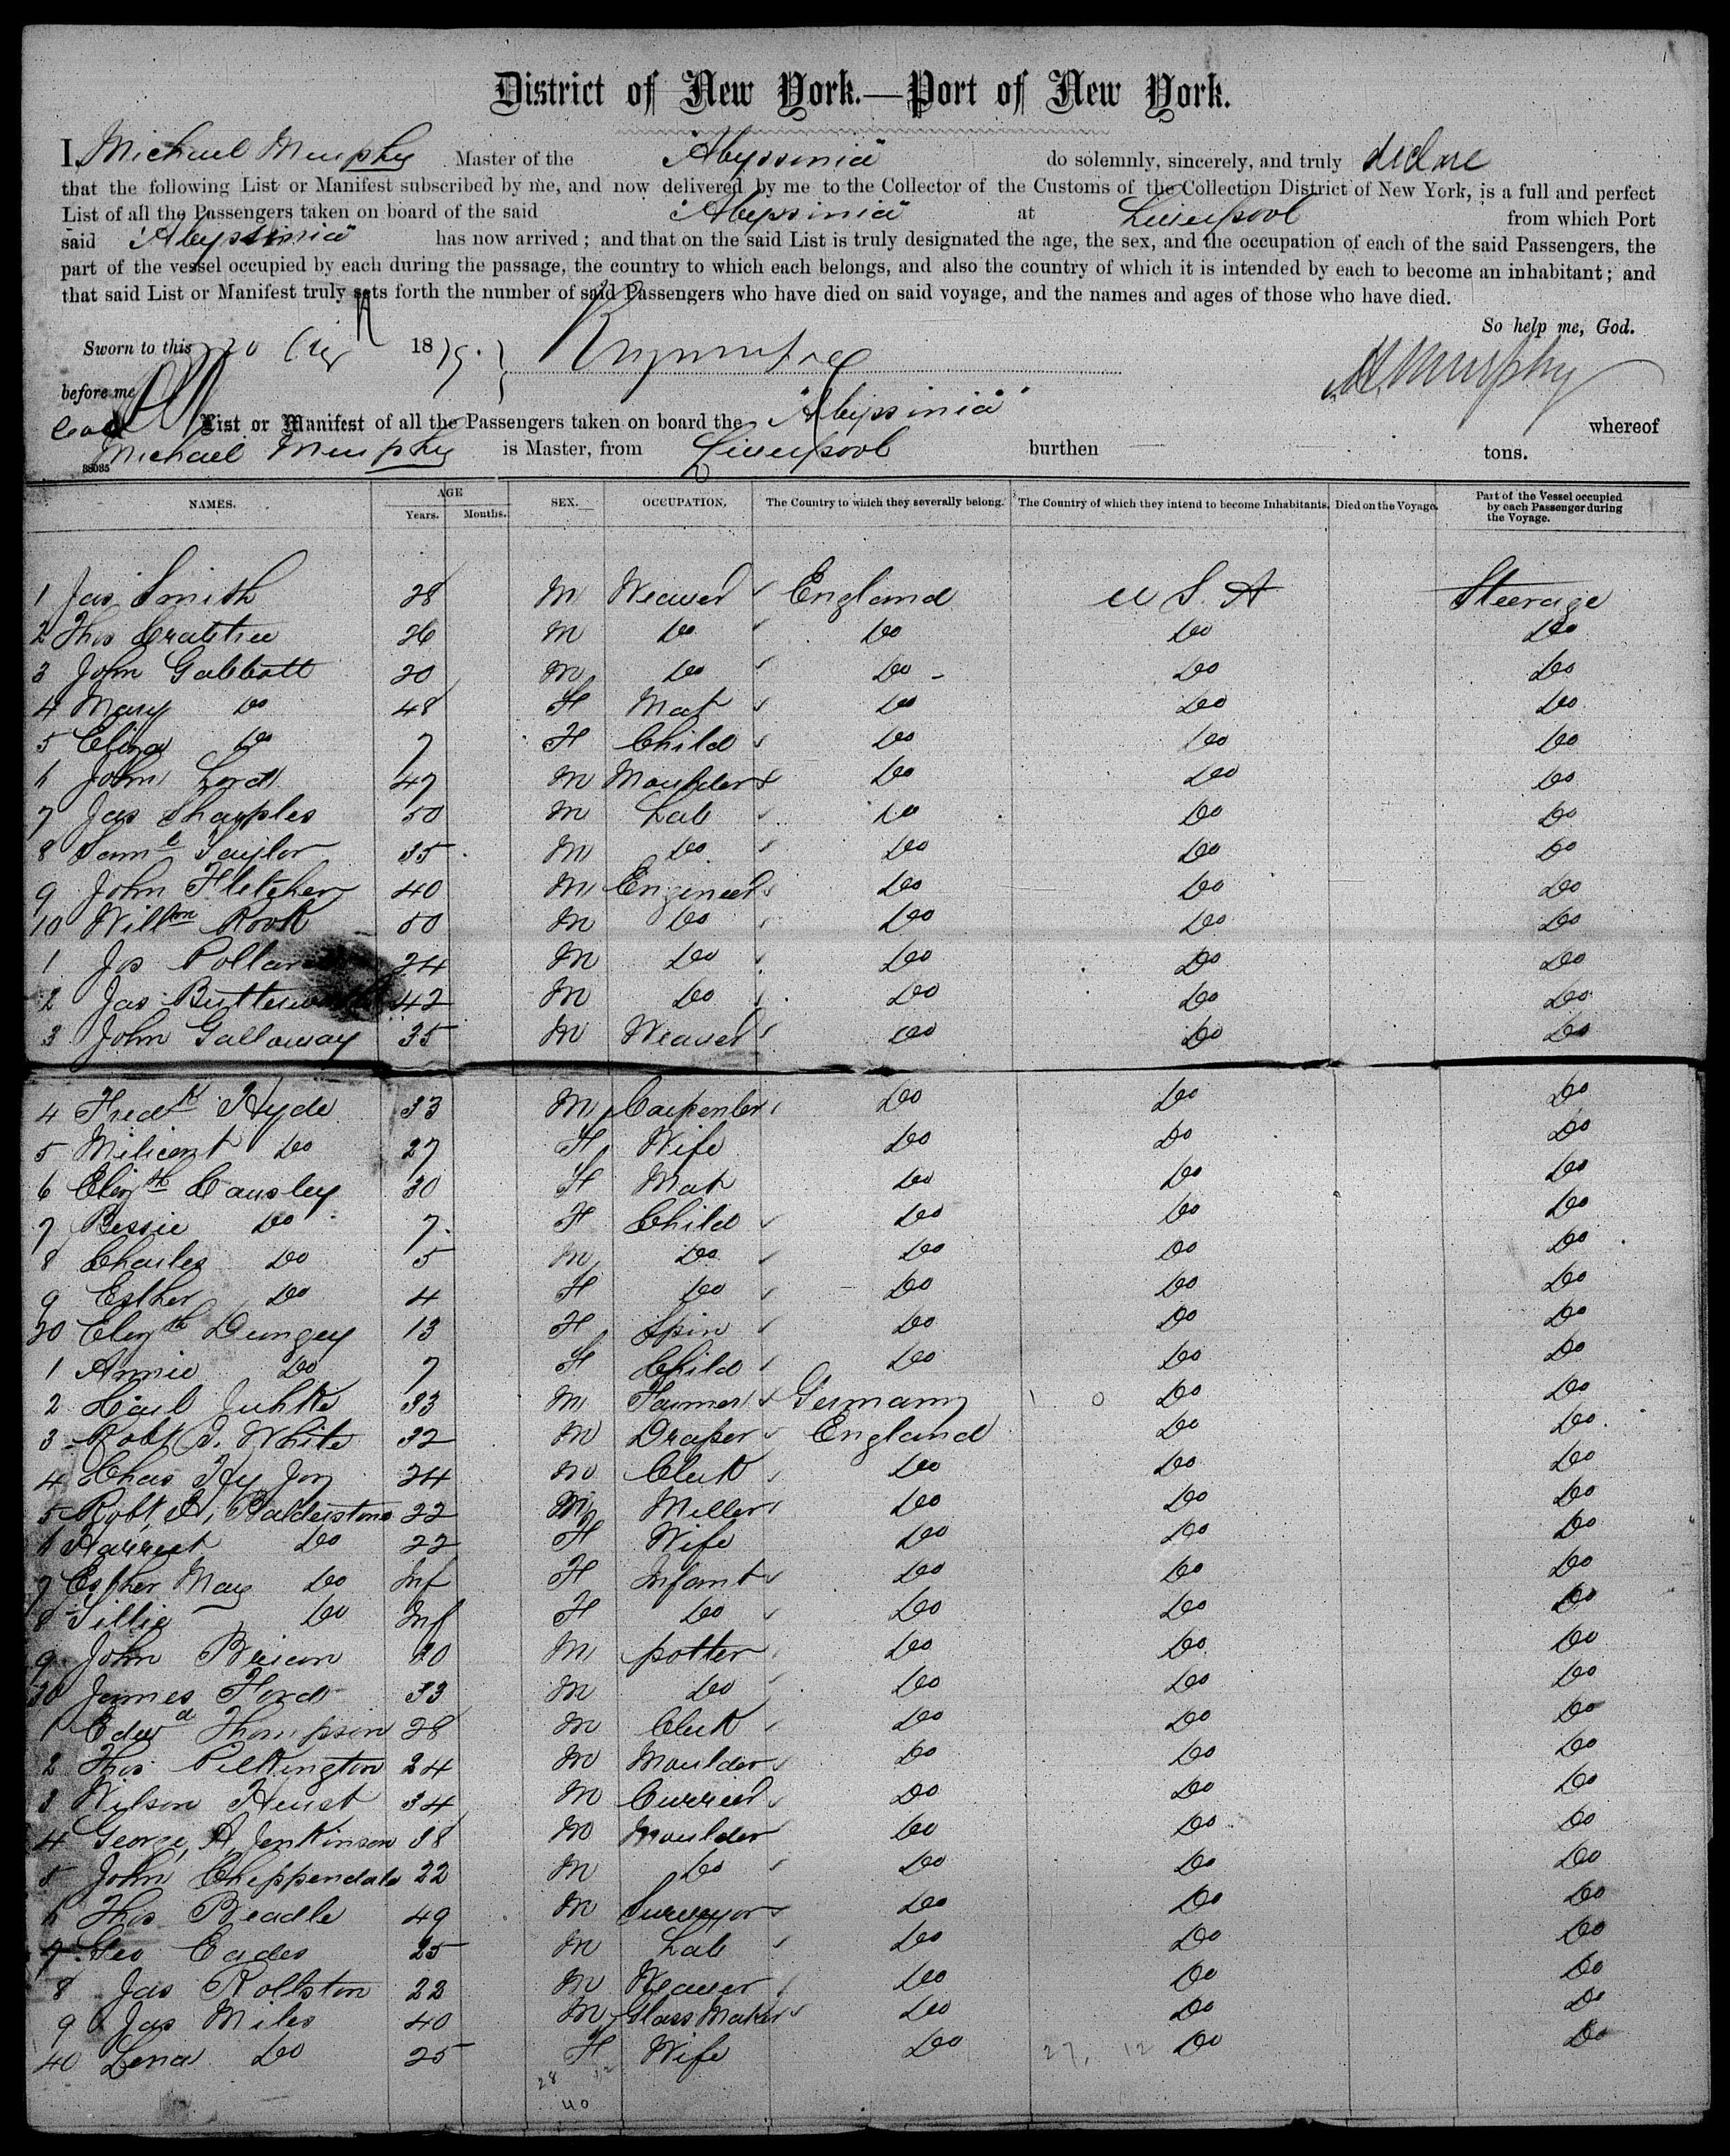 District of New York.—Port of New York.
I, Michael Murphy Master of the "Abyssinia" do solemnly, sincerely, and truly declare
that the following List or Manifest subscribed by me, and now delivered by me to the Collector of the Customs of the Collection District of New York, is a full and perfect
List of all the Passengers taken on board of the said "Abyssinia" at Liverpool from which Port
said "Abyssinia" has now arrived; and that on the said List is truly designated the age, the sex, and the occupation of each of the said Passengers, the
part of the vessel occupied by each during the passage, the country to which each belongs, and also the country of which it is intended by each to become an inhabitant; and
that said List or Manifest truly sets forth the number of said Passengers who have died on said voyage, and the names and ages of those who have died.
So help me, God.
Sworn to this 20 1879.
M Murphy
before me
List or Manifest of all the Passengers taken on board the "Abyssinia" whereof
Michael Murphy is Master, from Liverpool burthen tons.
38085
NAMES. AGE Years. Months. SEX. OCCUPATION. The Country to which they severally belong. The Country of which they intend to become Inhabitants. Died on the Voyage. Part of the Vessel occupied by each Passenger during the Voyage.
1 Jas Smith 28 M Weaver England U S A Steerage
2 Thos Crabtree 26 M Do Do Do Do
3 John Gabbott 20 M Do Do Do Do
4 Mary Do 48 F Mat Do Do Do
5 Eliza Do 7 F Child Do Do Do
6 John Lord 47 M Moulder Do Do Do
7 Jas Sharples 50 M Lab Do Do Do
8 Saml Taylor 35 M Do Do Do Do
9 John Fletcher 40 M Engineer Do Do Do
10 Willm Rook 50 M Do Do Do Do
1 Jos Pollard 24 M Do Do Do Do
2 Jas Butterworth 42 M Do Do Do Do
3 John Gallaway 35 M Weaver Do Do Do
4 Fredk Hyde 33 M Carpenter Do Do Do
5 Milicent Do 27 F Wife Do Do Do
6 Elizth Causley 30 F Mat Do Do Do
7 Bessie Do 7 F Child Do Do Do
8 Charles Do 5 M Do Do Do Do
9 Esther Do 4 F Do Do Do Do
20 Elizth Dungey 13 F Spin Do Do Do
1 Annie Do 7 F Child Do Do Do
2 Carl Juhke 33 M Farmer Germany Do Do
3 Robt J. White 32 M Draper England Do Do
4 Chas Hy Joy 24 M Clerk Do Do Do
5 Robt H. Balderstone 22 M Miller Do Do Do
6 Harriet Do 22 F Wife Do Do Do
7 Esther May Do Inf F Infant Do Do Do
8 Tillie Do Inf F Do Do Do Do
9 John 20 M potter Do Do Do
30 James Ford 33 M Do Do Do Do
1 Edwd Thompson 28 M Clerk Do Do Do
2 Thos Pilkington 24 M Moulder Do Do Do
3 Wilson Hurst 34 M Currier Do Do Do
4 George A Jenkinson 38 M Moulder Do Do Do
5 John Chippendale 22 M Do Do Do Do
6 Thos Beadle 49 M Surveyor Do Do Do
7 Geo Eades 25 M Lab Do Do Do
8 Jas Rollston 22 M Weaver Do Do Do
9 Jas Miles 40 M Glass Maker Do Do Do
40 Lena Do 25 F Wife Do Do Do
28 12 27, 12
40